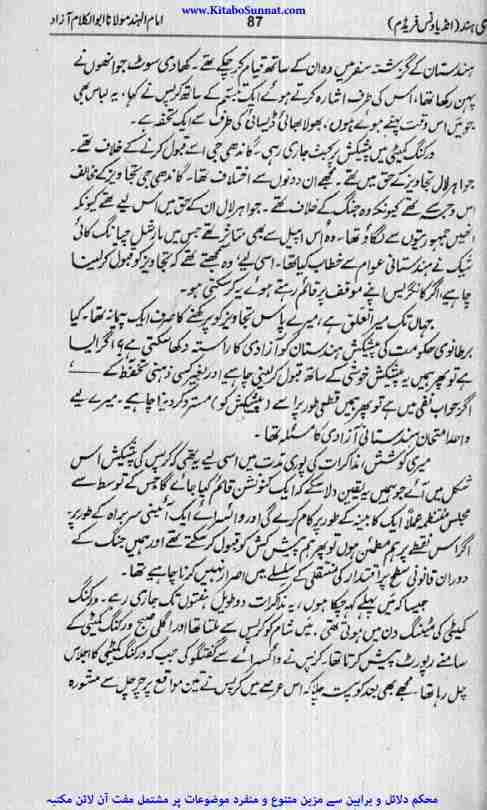 www.KitaboSunnat.com
ی ہند (انڈیا ونس فریڈم)
87
امام الہند مولانا ابوالکلام آزاد
ہندستان کے گزشتہ سفر میں وہ ان کے ساتھ قیام کر چکے تھے۔ کھادی سوٹ جو انھوں نے
پہن رکھا تھا، اُس کی طرف اشارہ کرتے ہوئے ایک تبسّم کے ساتھ کرپس نے کہا، یہ لباس بھی
جو میں اس وقت پہنے ہوئے ہوں، بھولا بھائی ڈیسائی کی طرف سے ایک تحفہ ہے۔
ورکنگ کمیٹی میں پیشکش پر بحث جاری رہی۔ گاندھی جی اسے قبول کرنے کے خلاف تھے۔
جواہر لال تجاویز کے حق میں تھے۔ مجھے ان دونوں سے اختلاف تھا۔ گاندھی جی تجاویز کے مخالف
اس وجہ سے تھے کیونکہ وہ جنگ کے خلاف تھے۔ جواہر لال ان کے حق میں اس لیے تھے کیونکہ
انھیں جمہوریتوں سے لگاؤ تھا۔ وہ اُس اپیل سے بھی متاثر تھے جس میں مارشل چیانگ کائی
شیک نے ہندستانی عوام سے خطاب کیا تھا۔ اسی لیے وہ سمجھتے تھے کہ تجاویز کو قبول کر لینا
چاہیے، اگر کانگریس اپنے موقف پر قائم رہتے ہوئے یہ کر سکتی ہو۔
جہاں تک میرا تعلق ہے، میرے پاس تجاویز کو پرکھنے کا صرف ایک پیمانہ تھا۔ کیا
برطانوی حکومت کی پیشکش ہندستان کو آزادی کا راستہ دکھا سکتی ہے؟ اگر ایسا
ہے تو پھر ہمیں یہ پیشکش خوشی کے ساتھ قبول کر لینی چاہیے اور بغیر کسی ذہنی تحفّظ کے —
اگر جواب نفی میں ہے تو پھر ہمیں قطعی طور پر اسے (پیشکش کو) مسترد کر دینا چاہیے۔ میرے لیے
واحد امتحان ہندستانی آزادی کا مسئلہ تھا۔
میری کوشش، مذاکرات کی پوری مدت میں اسی لیے یہ تھی کہ کرپس کی پیشکش اس
شکل میں آئے جو ہمیں یہ یقین دلا سکے کہ ایک کنونشن قائم کیا جائے گا جس کے توسط سے
مجلسِ منتظمہ عملاً ایک کابینہ کے طور پر کام کرے گی اور وائسرائے ایک آئینی سربراہ کے طور پر۔
اگر اس نقطے پر ہم مطمئن ہوں تو پھر ہم پیش کش کو قبول کر سکتے تھے اور ہمیں جنگ کے
دوران قانونی سطح پر اقتدار کی منتقلی کے سلسلے میں اصرار نہیں کرنا چاہیے تھا۔
جیسا کہ میں پہلے کہہ چکا ہوں، یہ مذاکرات دو طویل ہفتوں تک جاری رہے۔ ورکنگ
کمیٹی کی میٹنگ دن میں ہوتی تھی، میں شام کو کرپس سے ملتا تھا اور اگلی صبح ورکنگ کمیٹی کے
سامنے رپورٹ پیش کرتا تھا۔ کرپس نے وائسرائے سے گفتگو کی جب کہ ورکنگ کمیٹی کا اجلاس
چل رہا تھا۔ مجھے بھی بعد کو پتہ چلا کہ اس عرصے میں کرپس نے تین مواقع پر چرچل سے مشورہ
محکم دلائل و براہین سے مزین متنوع و منفرد موضوعات پر مشتمل مفت آن لائن مکتبہ